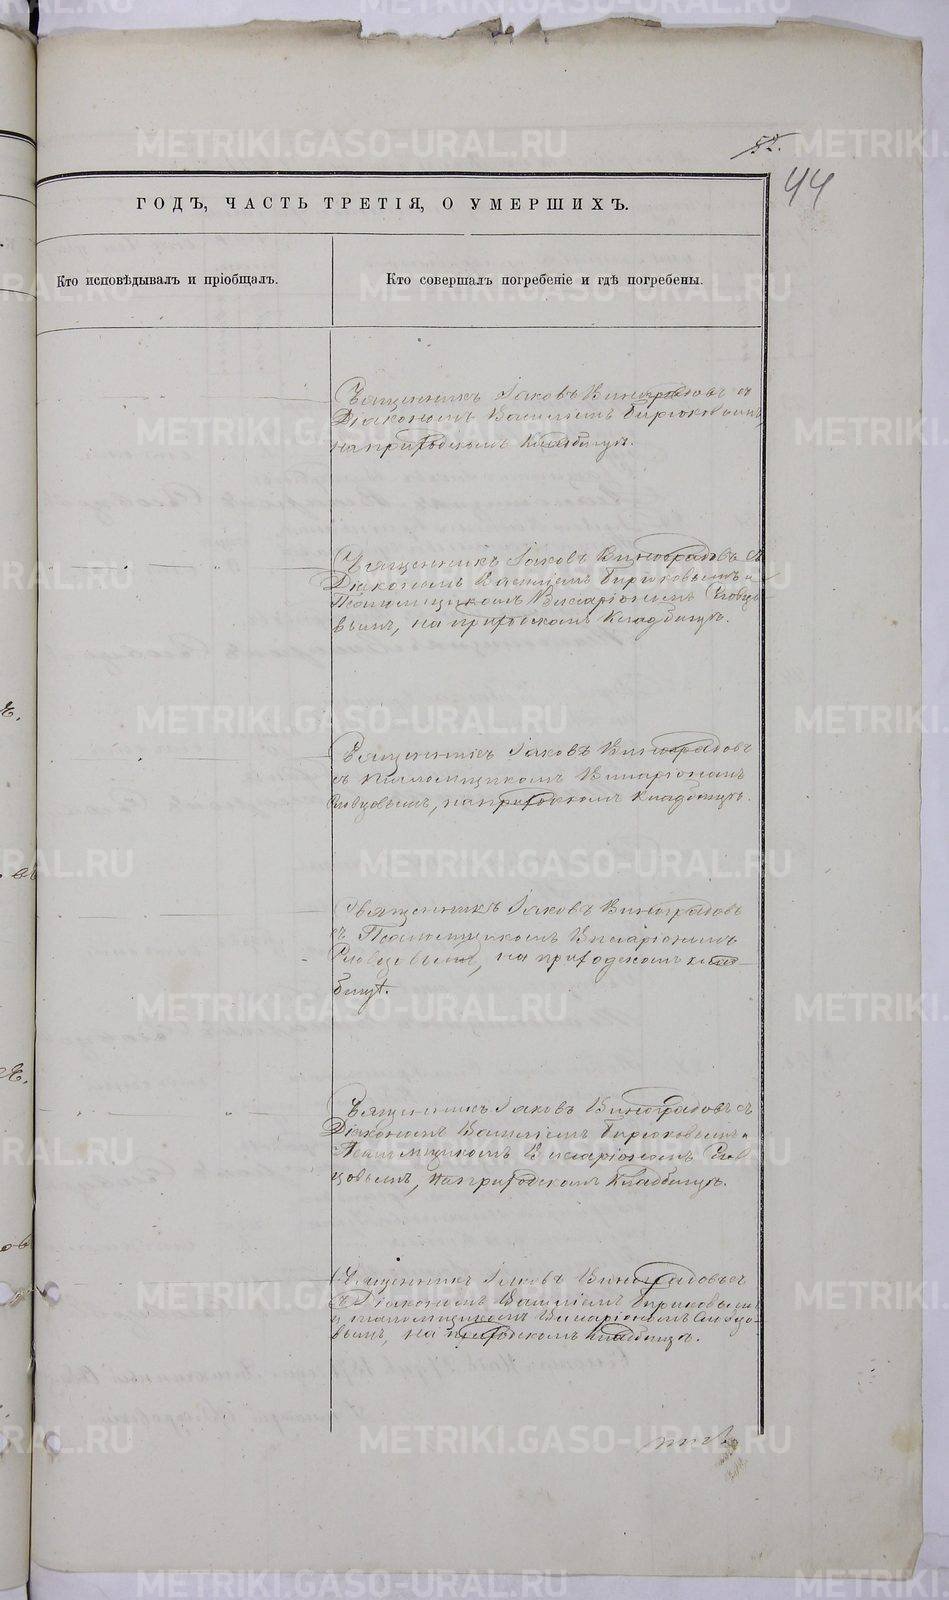 52.
44
ГОДЪ, ЧАСТЬ ТРЕТІЯ, О УМЕРШИХЪ.
Кто исповѣдывалъ и пріобщалъ.
Кто совершалъ погребеніе и гдѣ погребены.
Священникъ Іаковъ Виноградовъ съ
Діакономъ Василіемъ Бирюковымъ,
на приходскомъ кладбищѣ.
Священникъ Іаковъ Виноградовъ съ
Діакономъ Василіемъ Бирюковымъ и
Псаломщикомъ Виссаріономъ Словцо
вымъ, на приходскомъ кладбищѣ.
Священникъ Іаковъ Виноградовъ
съ псаломщикомъ Виссаріономъ
Словцовымъ, на приходскомъ кладбищѣ.
Священникъ Іаковъ Виноградовъ
съ Псаломщикомъ Виссаріономъ
Словцовымъ, на приходскомъ клад-
бищѣ.
Священникъ Іаковъ Виноградовъ съ
Діакономъ Василіемъ Бирюковымъ и
Псаломщикомъ Виссаріономъ Слов
цовымъ, на приходскомъ кладбищѣ.
Священникъ Іаковъ Виноградовъ съ
съ Діакономъ Василіемъ Бирюковымъ
и псаломщикомъ Виссаріономъ Словцо-
вымъ, на приходскомъ кладбищѣ.
METRIKI.GASO-URAL.RU